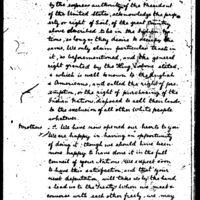 by the supreme authority of the President
of the United States, acknowledge the property
or right of soil, of the great Country
above described to be in the Indian Na-
tions, so long as they desire to occupy the
same. We only claim particular tracts in
it, as beforementioned, and the general
right granted by the King, before stated,
& which is well known to the English
& Americans, and called the right of pre-
emption, or the right of purchasing of the
Indian Nations, disposed to sell their lands,
to the exclusion of all other White people
whatever.
Brothers :- We have now opened our hearts to you
We are happy in having an opportunity
of doing it : though we should have been
more happy to have done it in the full
council of your Nations. We expect soon
to have this satisfaction, and that your
next deputation, will take us by the hand,
& lead us to the Treaty. When we meet &
converse with each other freely, we may